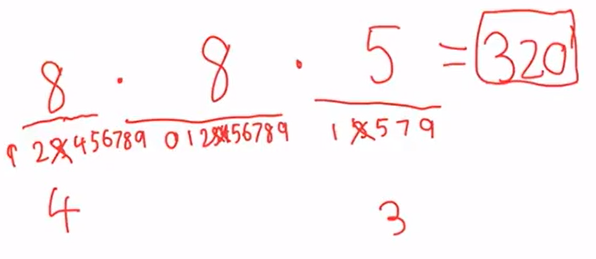 8 · 8 · 5 = 320
1 2 3 4 5 6 7 8 9 0 1 2 3 4 5 6 7 8 9 1 3 5 7 9
4 3